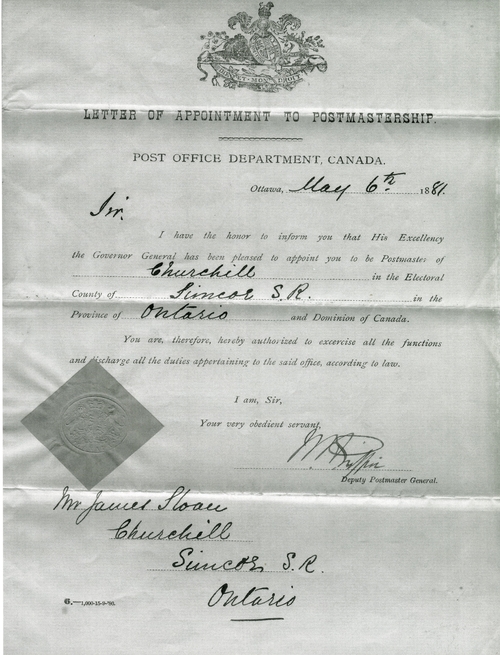 DIEU ET MON DROIT
LETTER OF APPOINTMENT TO POSTMASTERSHIP.
POST OFFICE DEPARTMENT, CANADA.
Ottawa, May 6th 1881.
Sir.
I have the honor to inform you that His Excellency
the Governor General has been pleased to appoint you to be Postmaster of
Churchill in the Electoral
County of Simcoe S.R. in the
Province of Ontario and Dominion of Canada.
You are, therefore, hereby authorized to excercise all the functions
and discharge all the duties appertaining to the said office, according to law.
I am, Sir,
Your very obedient servant,
Deputy Postmaster General.
Mr James Sloan
Churchill
Simcoe S.R.
Ontario
6.—1,000-15-9-'80.